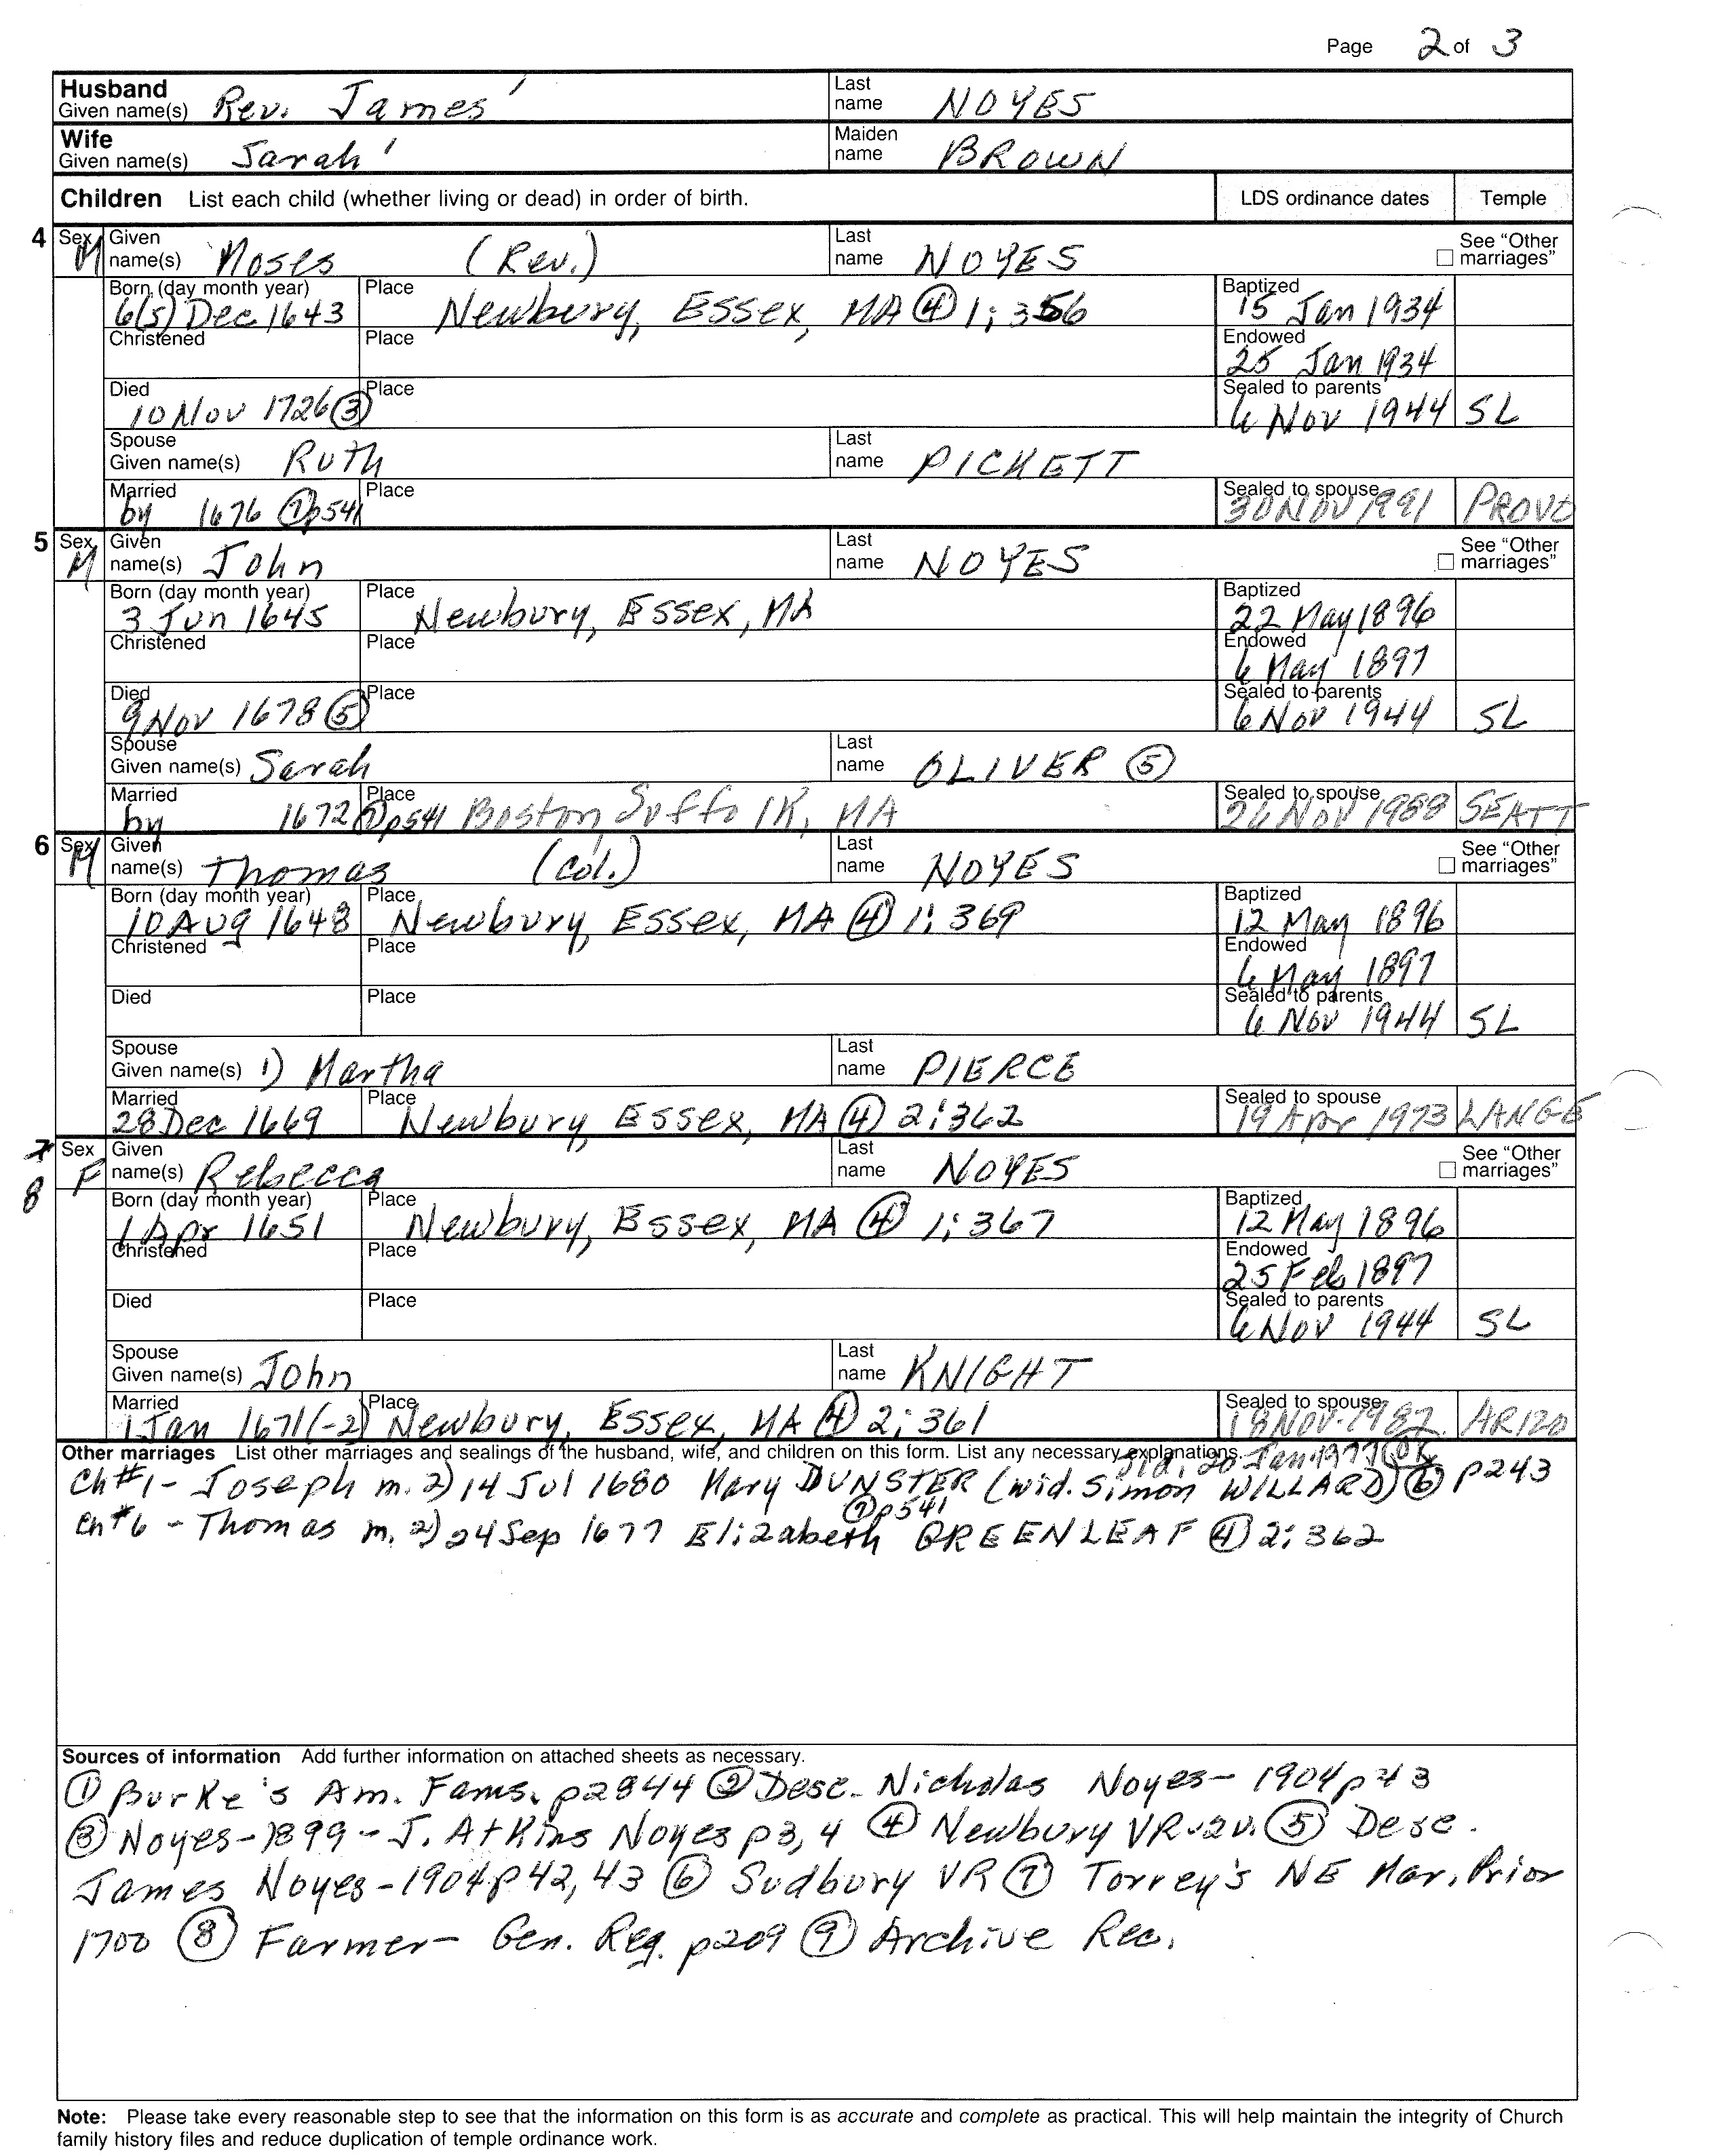 Page 2 of 3
Husband Given name(s) Rev. James Last name NOYES
Wife Given name(s) Sarah Maiden name BROWN
Children List each child (whether living or dead) in order of birth. LDS ordinance dates Temple
4 Sex M Given name(s) Moses (Rev.) Last name NOYES See "Other marriages"
Born (day month year) 6(s) Dec 1643 Place Newbury, Essex, MA ④ 1:356 Baptized 15 Jan 1934
Christened Place Endowed 25 Jan 1934
Died 10 Nov 1726 ③ Place Sealed to parents 6 Nov 1944 SL
Spouse Given name(s) Ruth Last name PICKETT
Married by 1676 ⑦ p541 Place Sealed to spouse 30 NOV 1991 PROVO
5 Sex M Given name(s) John Last name NOYES See "Other marriages"
Born (day month year) 3 Jun 1645 Place Newbury, Essex, MA Baptized 22 May 1896
Christened Place Endowed 6 May 1897
Died 9 Nov 1678 ⑤ Place Sealed to parents 6 Nov 1944 SL
Spouse Given name(s) Sarah Last name OLIVER ⑤
Married by 1672 ⑦ p541 Place Boston, Suffolk, MA Sealed to spouse 26 NOV 1988 SEATT
6 Sex M Given name(s) Thomas (Col.) Last name NOYES See "Other marriages"
Born (day month year) 10 Aug 1648 Place Newbury, Essex, MA ④ 1:369 Baptized 12 May 1896
Christened Place Endowed 6 May 1897
Died Place Sealed to parents 6 Nov 1944 SL
Spouse Given name(s) 1) Martha Last name PIERCE
Married 28 Dec 1669 Place Newbury, Essex, MA ④ 2:362 Sealed to spouse 19 Apr 1973 LANGE
7 8 Sex F Given name(s) Rebecca Last name NOYES See "Other marriages"
Born (day month year) 1 Apr 1651 Place Newbury, Essex, MA ④ 1:367 Baptized 12 May 1896
Christened Place Endowed 25 Feb 1897
Died Place Sealed to parents 6 Nov 1944 SL
Spouse Given name(s) John Last name KNIGHT
Married 1 Jan 1671(-2) Place Newbury, Essex, MA ④ 2:361 Sealed to spouse 18 NOV 1987 ARIZO
Other marriages List other marriages and sealings of the husband, wife, and children on this form. List any necessary explanations. Sld. 20 Jan 1977
Ch #1 - Joseph m. 2) 14 Jul 1680 Mary DUNSTER (wid. Simon WILLARD) ⑥ p243
⑦ p541
Ch #6 - Thomas m. 2) 24 Sep 1677 Elizabeth GREENLEAF ④ 2:362
Sources of information Add further information on attached sheets as necessary.
① Burke's Am. Fams. p2844 ② Desc. Nicholas Noyes - 1904 p43
③ Noyes - 1899 - J. Atkins Noyes p3,4 ④ Newbury VR - 2v. ⑤ Desc.
James Noyes - 1904 p42,43 ⑥ Sudbury VR ⑦ Torrey's NE Mar. Prior
1700 ⑧ Farmer - Gen. Reg. p209 ⑨ Archive Rec.
Note: Please take every reasonable step to see that the information on this form is as accurate and complete as practical. This will help maintain the integrity of Church
family history files and reduce duplication of temple ordinance work.